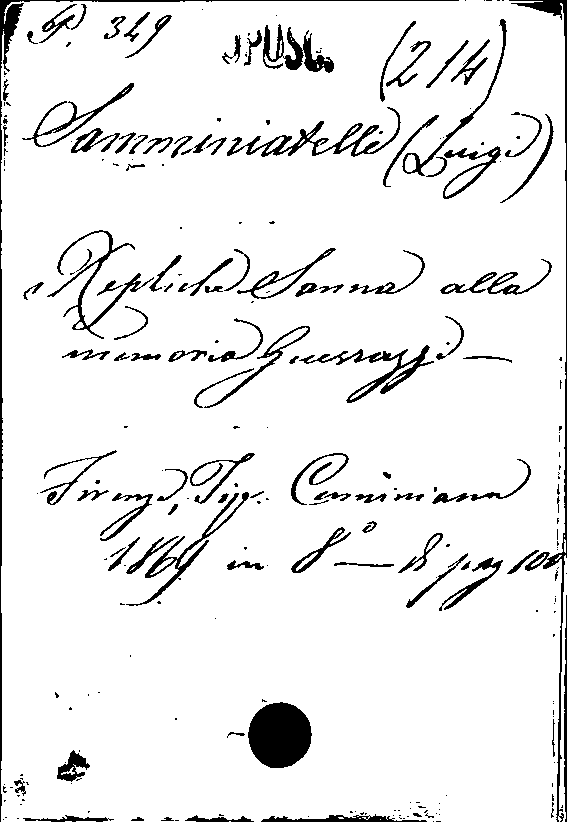 P. 349
OPUSC. (214)
Samminiatelli (Luigi)
Repliche Sanna alla
memoria Guerrazzi —
Firenze, Tip. Cominiana
1869 in 8° — di pag 100